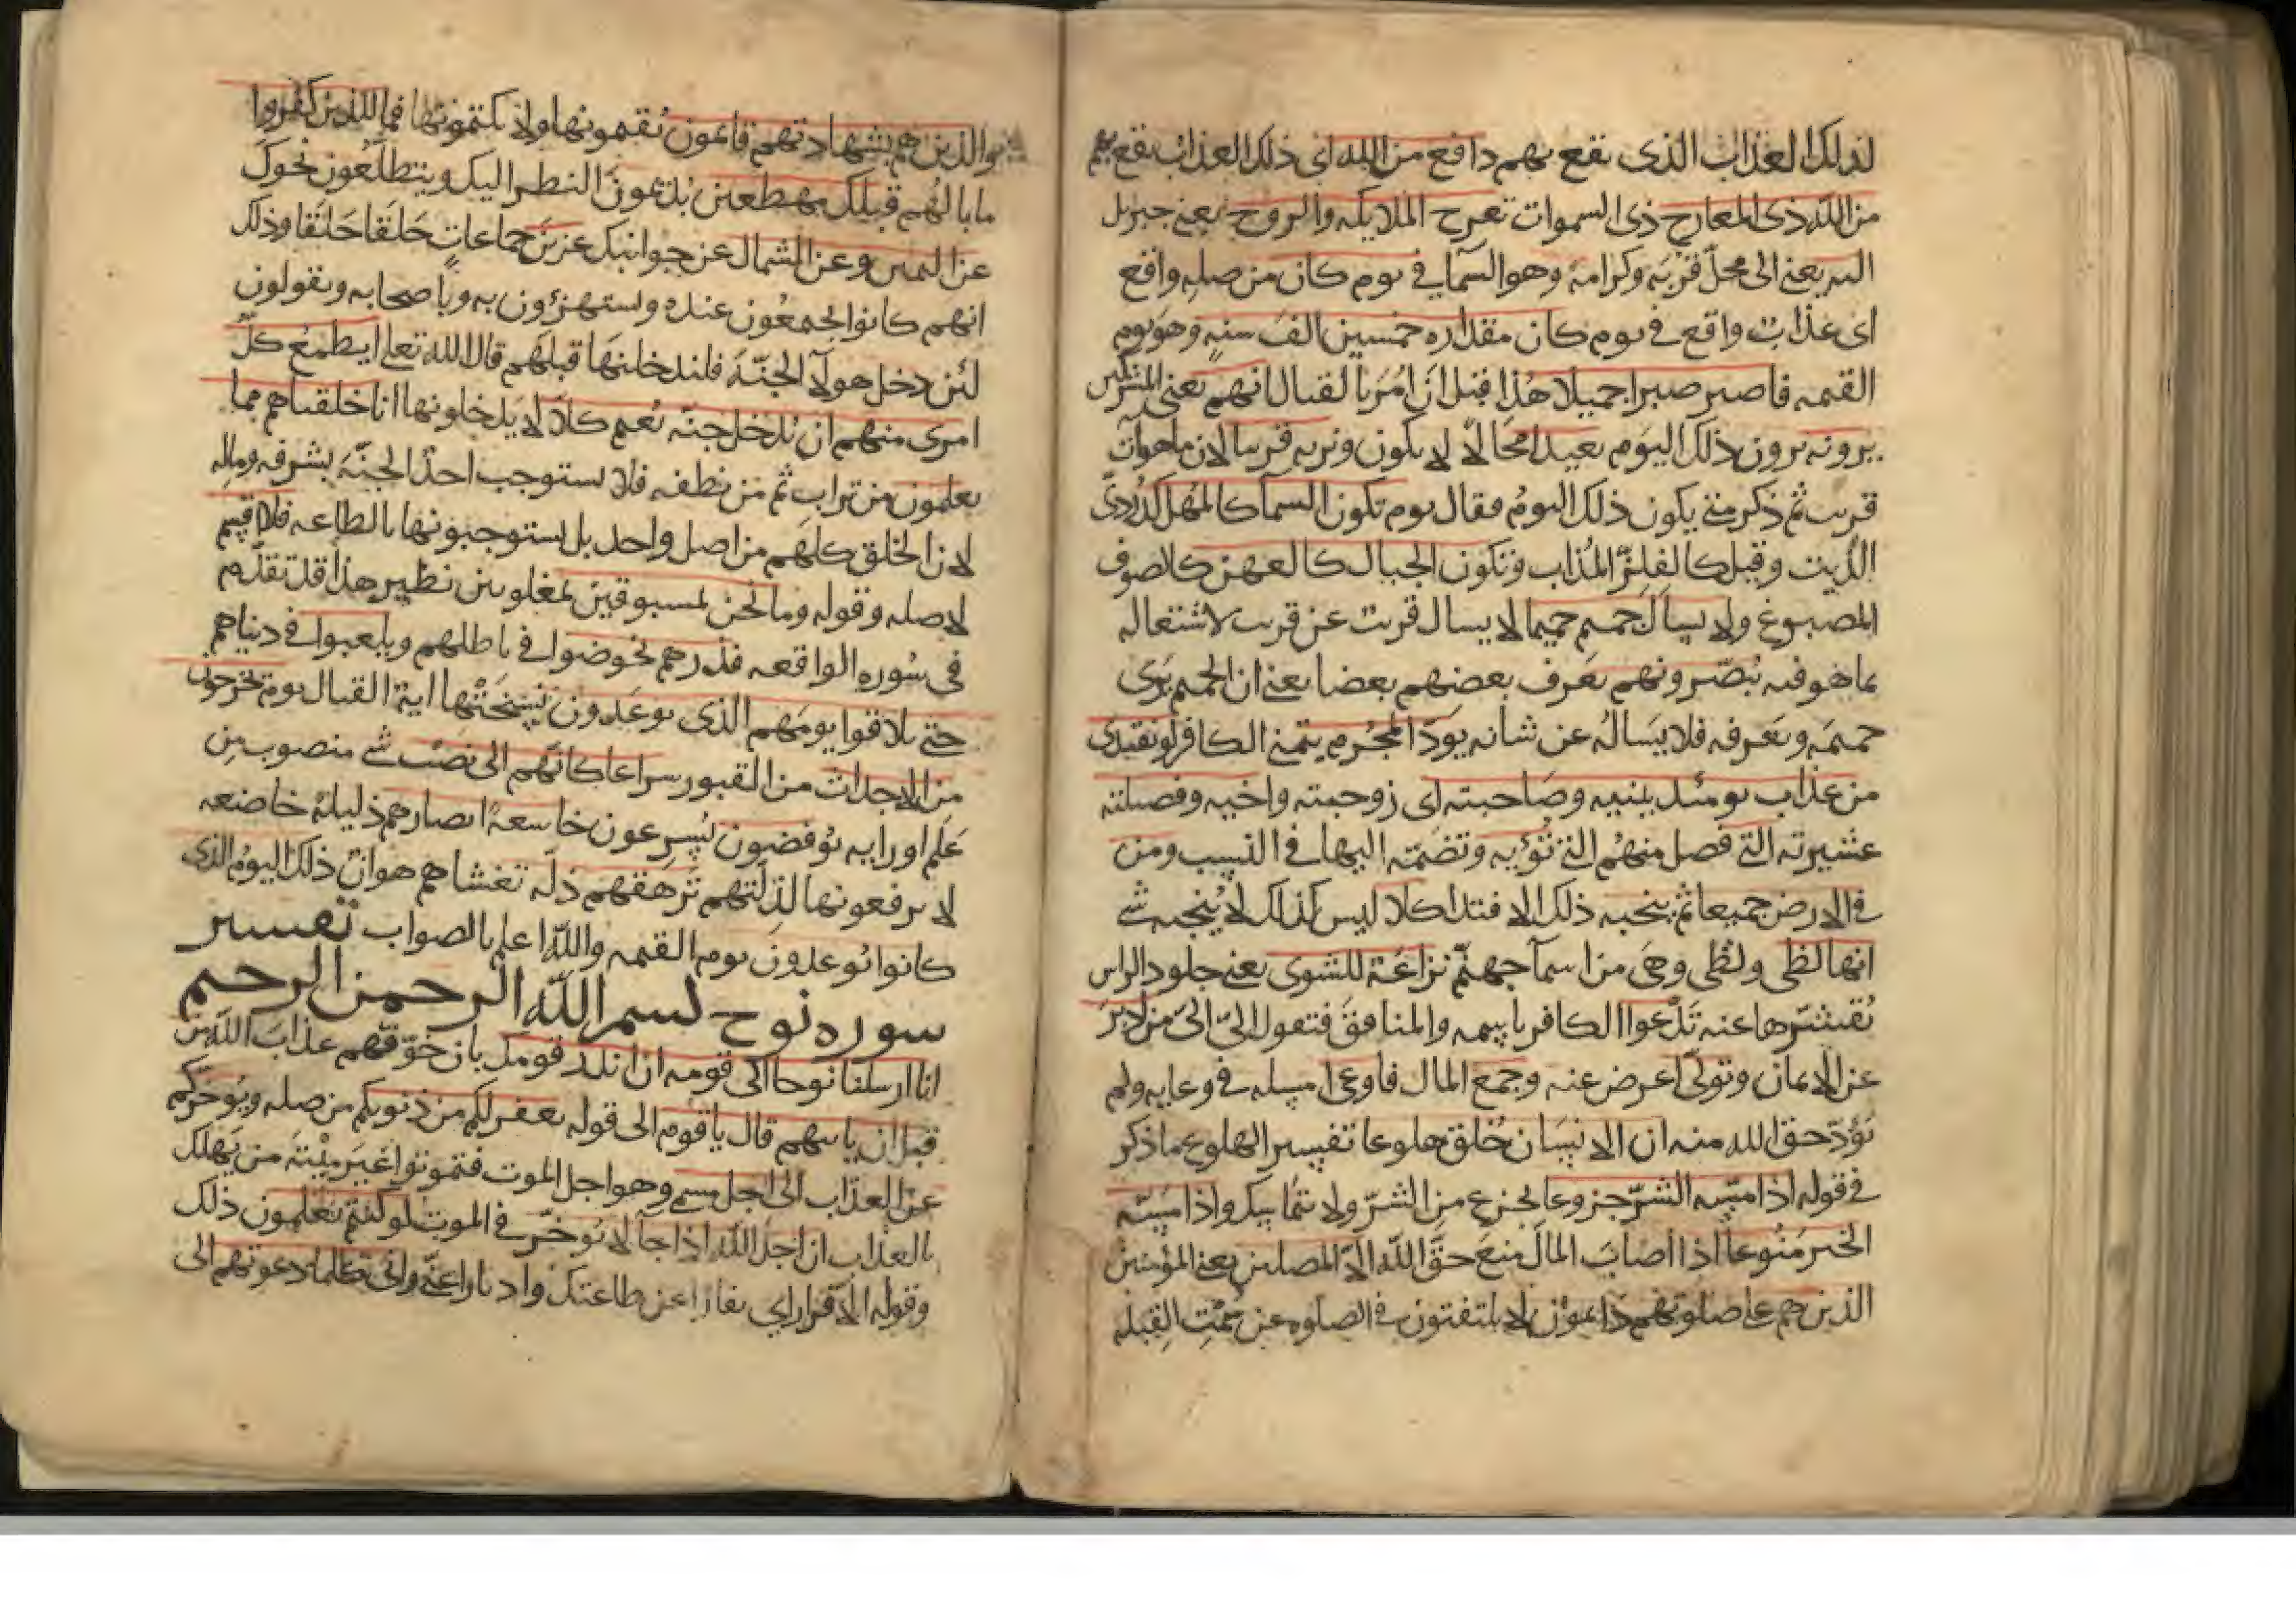 لذلك العذاب الذى يقع بهم دافع من الله اى ذلك العذاب يقع بهم
من الله ذى المعارج ذى السموات تعرج الملايكه والروح يعنى جبريل
اليه يعنى الى محل قربته وكرامته وهو السماء فى يوم كان من صله واقع
اى عذاب واقع فى يوم كان مقداره خمسين الف سنه وهو يوم
القيمه فاصبر صبرا جميلا هذا قبل ان امر بالقتال انهم يعنى المشركين
يرونه يرون ذلك اليوم بعيدا محالا لا يكون ونريه قريبا لان ما هو آت
قريب ثم ذكر متى يكون ذلك اليوم فقال يوم تكون السماء كالمهل كدردى
الزيت وقيل كالفلز المذاب وتكون الجبال كالعهن كالصوف
المصبوغ ولا يسال حميم حميما لا يسال قريب عن قريب لاشتغاله
بما هو فيه يبصرونهم يعرف بعضهم بعضا يعنى ان الحميم يرى
حميمه ويعرفه فلا يساله عن شانه يود المجرم يتمنى الكافر لو يفتدى
من عذاب يومئذ ببنيه وصاحبته اى زوجته واخيه وفصيلته
عشيرته التى فصل منهم التى تؤيه وتضمه اليها فى النسب ومن
فى الارض جميعا ثم ينجيه ذلك الافتدا كلا ليس كذلك لا ينجيه شى
انها لظى ولظى وهى من اسما جهنم نزاعة للشوى يعنى جلود الراس
تقشرها عنه تدعوا الكافر باسمه والمنافق فتقول الىّ الىّ من ادبر
عن الايمان وتولى اعرض عنه وجمع المال فاوعى امسكه فى وعايه ولم
يؤد حق الله منه ان الانسان خلق هلوعا تفسير الهلوع ما ذكر
فى قوله اذا مسه الشر جزوعا يجزع من الشر ولا يتماسك واذا مسه
الخير منوعا اذا اصاب المال منع حق الله الا المصلين يعنى المؤمنين
الذين هم على صلوتهم دايمون لا يلتفتون فى الصلوه عن سمت القبله
والذين هم بشهادتهم قايمون يقيمونها ولا يكتمونها فما للذين كفروا
ما بالهم قبلك مهطعين يديمون النظر اليك ويتطلعون نحوك
عن اليمين وعن الشمال عن جوانبك عزين جماعات حلقا حلقا وذلك
انهم كانوا يجتمعون عنده ويستهزؤن به وباصحابه ويقولون
لئن دخل هولاء الجنة فلندخلنها قبلهم قال الله تعلى ايطمع كل
امرى منهم ان يدخل جنة نعيم كلا لا يدخلونها انا خلقناهم مما
يعلمون من تراب ثم من نطفه فلا يستوجب احد الجنة بشرفه وماله
لان الخلق كلهم من اصل واحد بل يستوجبونها بالطاعه فلا اقسم
لا صله وقوله وما نحن بمسبوقين بمغلوبين نظير هذا قد تقدم
فى سوره الواقعه فذرهم يخوضوا فى باطلهم ويلعبوا فى دنياهم
حتى يلاقوا يومهم الذى يوعدون نسختها اية القتال يوم يخرجون
من الاجداث من القبور سراعا كانهم الى نصب شى منصوب من
علم او رايه يوفضون يسرعون خاشعة ابصارهم ذليلة خاضعه
لا يرفعونها لذلتهم ترهقهم ذلة تغشاهم هوان ذلك اليوم الذى
كانوا يوعدون يوم القيمه والله اعلم بالصواب تفسير
سوره نوح بسم الله الرحمن الرحيم
انا ارسلنا نوحا الى قومه ان انذر قومك بان خوفهم عذاب الله من
قبل ان ياتيهم قال يا قوم الى قوله يغفر لكم من ذنوبكم من صله ويوخركم
عن العذاب الى اجل مسمى وهو اجل الموت فتموتوا غير ميتة من يهلك
بالعذاب ان اجل الله اذا جا لا يوخر فى الموت لو كنتم تعلمون ذلك
وقوله الا فرارا اى نفارا عن طاعتك وادبارا عنى وانى كلما دعوتهم الى